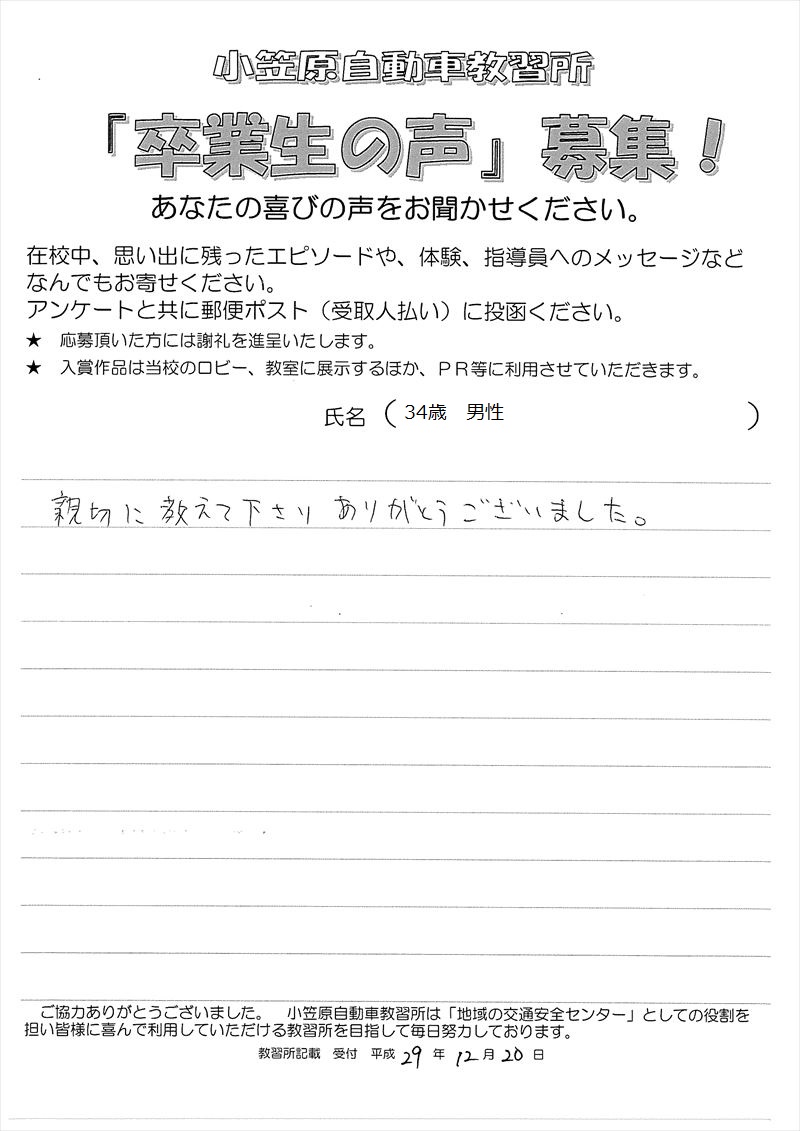 小笠原自動車教習所
『卒業生の声』募集！
あなたの喜びの声をお聞かせください。
在校中、思い出に残ったエピソードや、体験、指導員へのメッセージなど
なんでもお寄せください。
アンケートと共に郵便ポスト（受取人払い）に投函ください。
★　応募頂いた方には謝礼を進呈いたします。
★　入賞作品は当校のロビー、教室に展示するほか、ＰＲ等に利用させていただきます。
氏名（34歳　男性）
親切に教えて下さりありがとうございました。
ご協力ありがとうございました。　小笠原自動車教習所は「地域の交通安全センター」としての役割を
担い皆様に喜んで利用していただける教習所を目指して毎日努力しております。
教習所記載　受付　平成29年12月20日